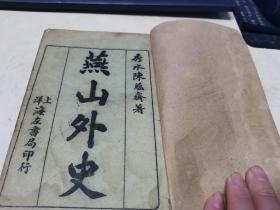 秀水陳蘊齋著
燕山外史
上洋海左書局印行